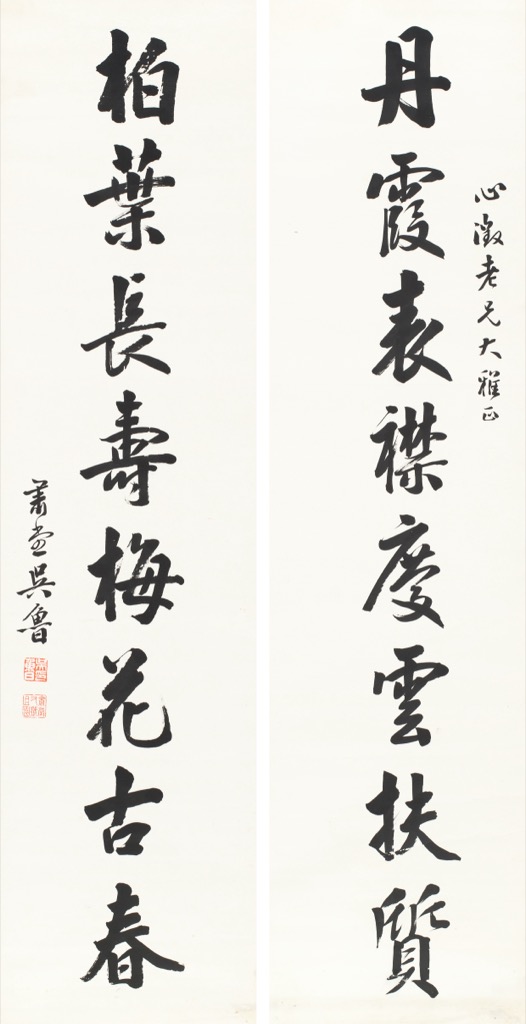 心澂老兄大雅正
丹霞表襟慶雲扶質
柏葉長壽梅花古春
肅堂吳魯